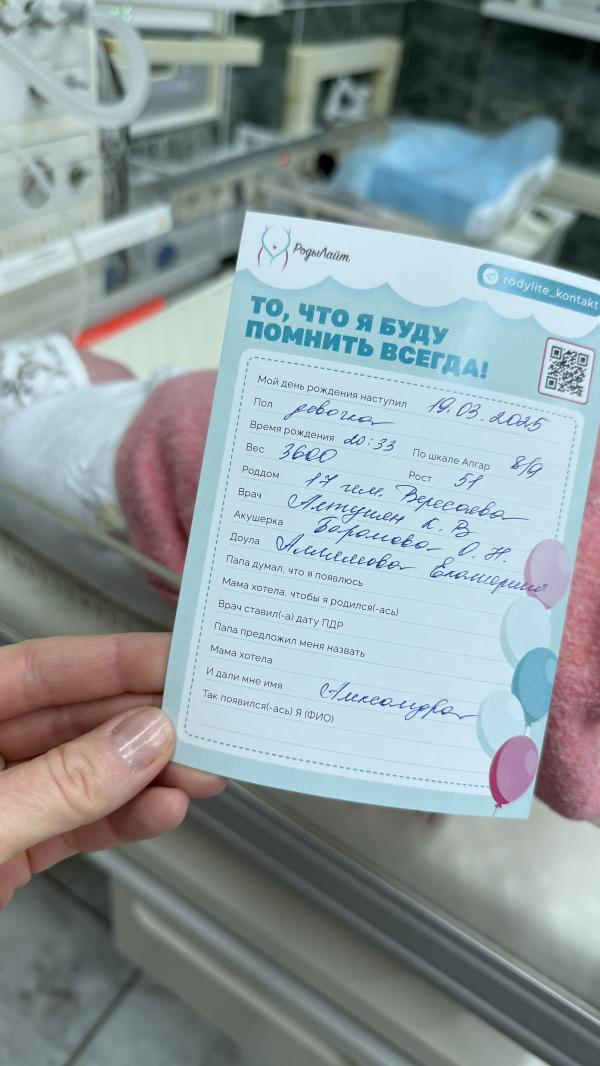 РодыЛайт
rodylite_kontakt
ТО, ЧТО Я БУДУ
ПОМНИТЬ ВСЕГДА!
Мой день рождения наступил 19.03.2025
Пол девочка
Время рождения 20:33 По шкале Апгар 8/9
Вес 3600 Рост 51
Роддом 17 им. Вересаева
Врач К. В
Акушерка Баранова О. Н.
Доула Екатерина
Папа думал, что я появлюсь
Мама хотела, чтобы я родился(-ась)
Врач ставил(-а) дату ПДР
Папа предложил меня назвать
Мама хотела
И дали мне имя Александра
Так появился(-ась) Я (ФИО)